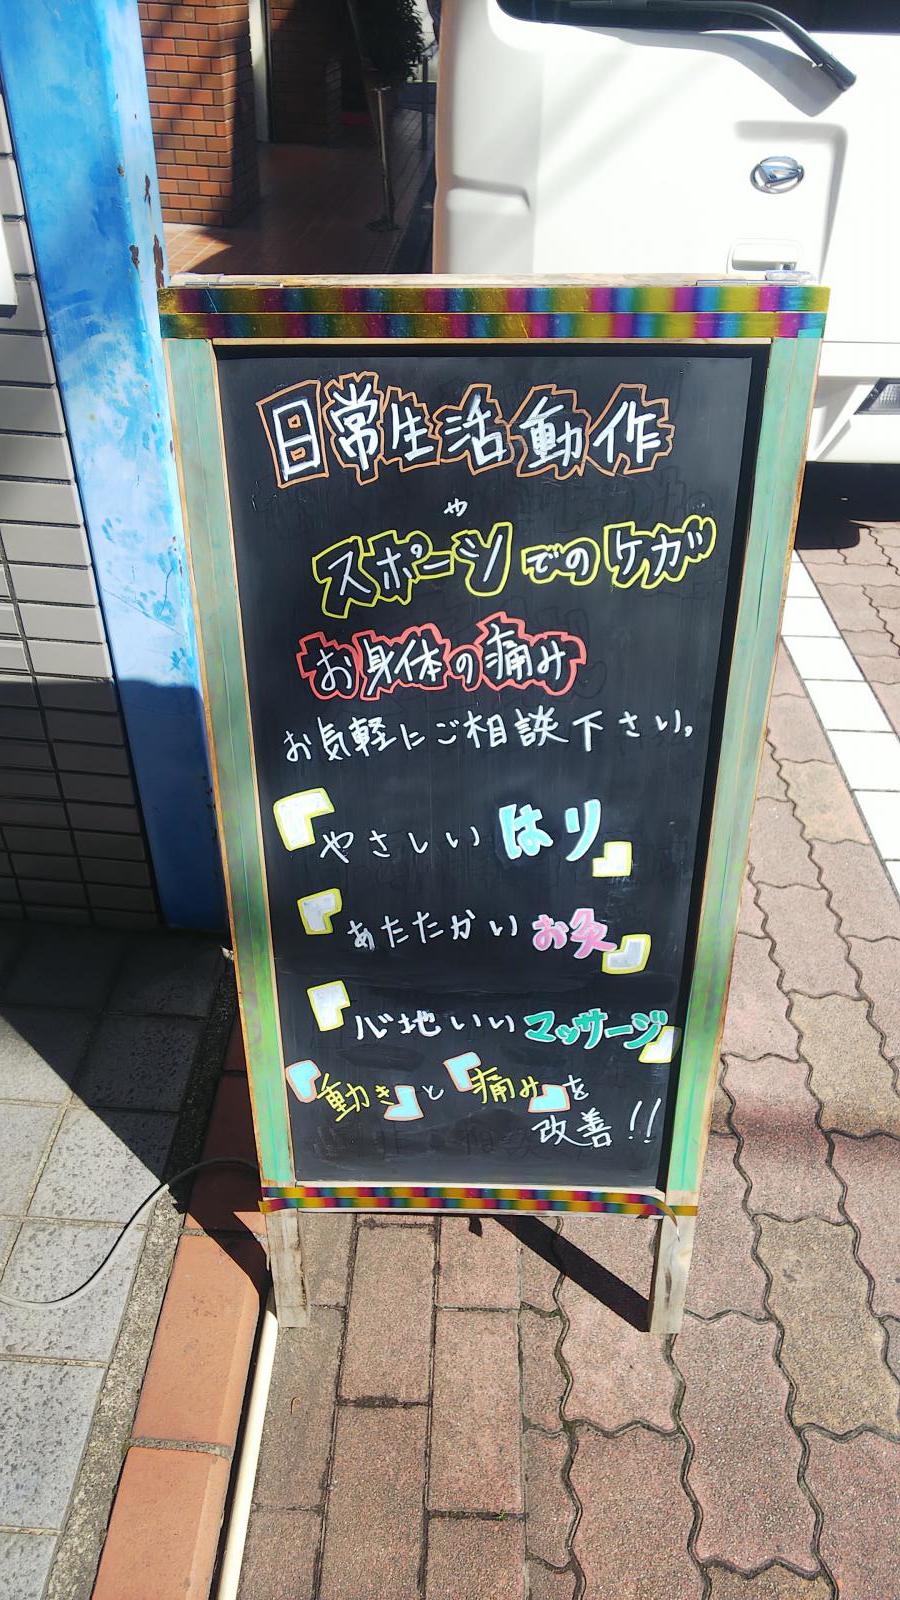 日常生活動作
や
スポーツでのケガ
お身体の痛み
お気軽にご相談下さい。
「やさしいはり」
「あたたかいお灸」
「心地いいマッサージ」
「動き」と「痛み」を
改善!!